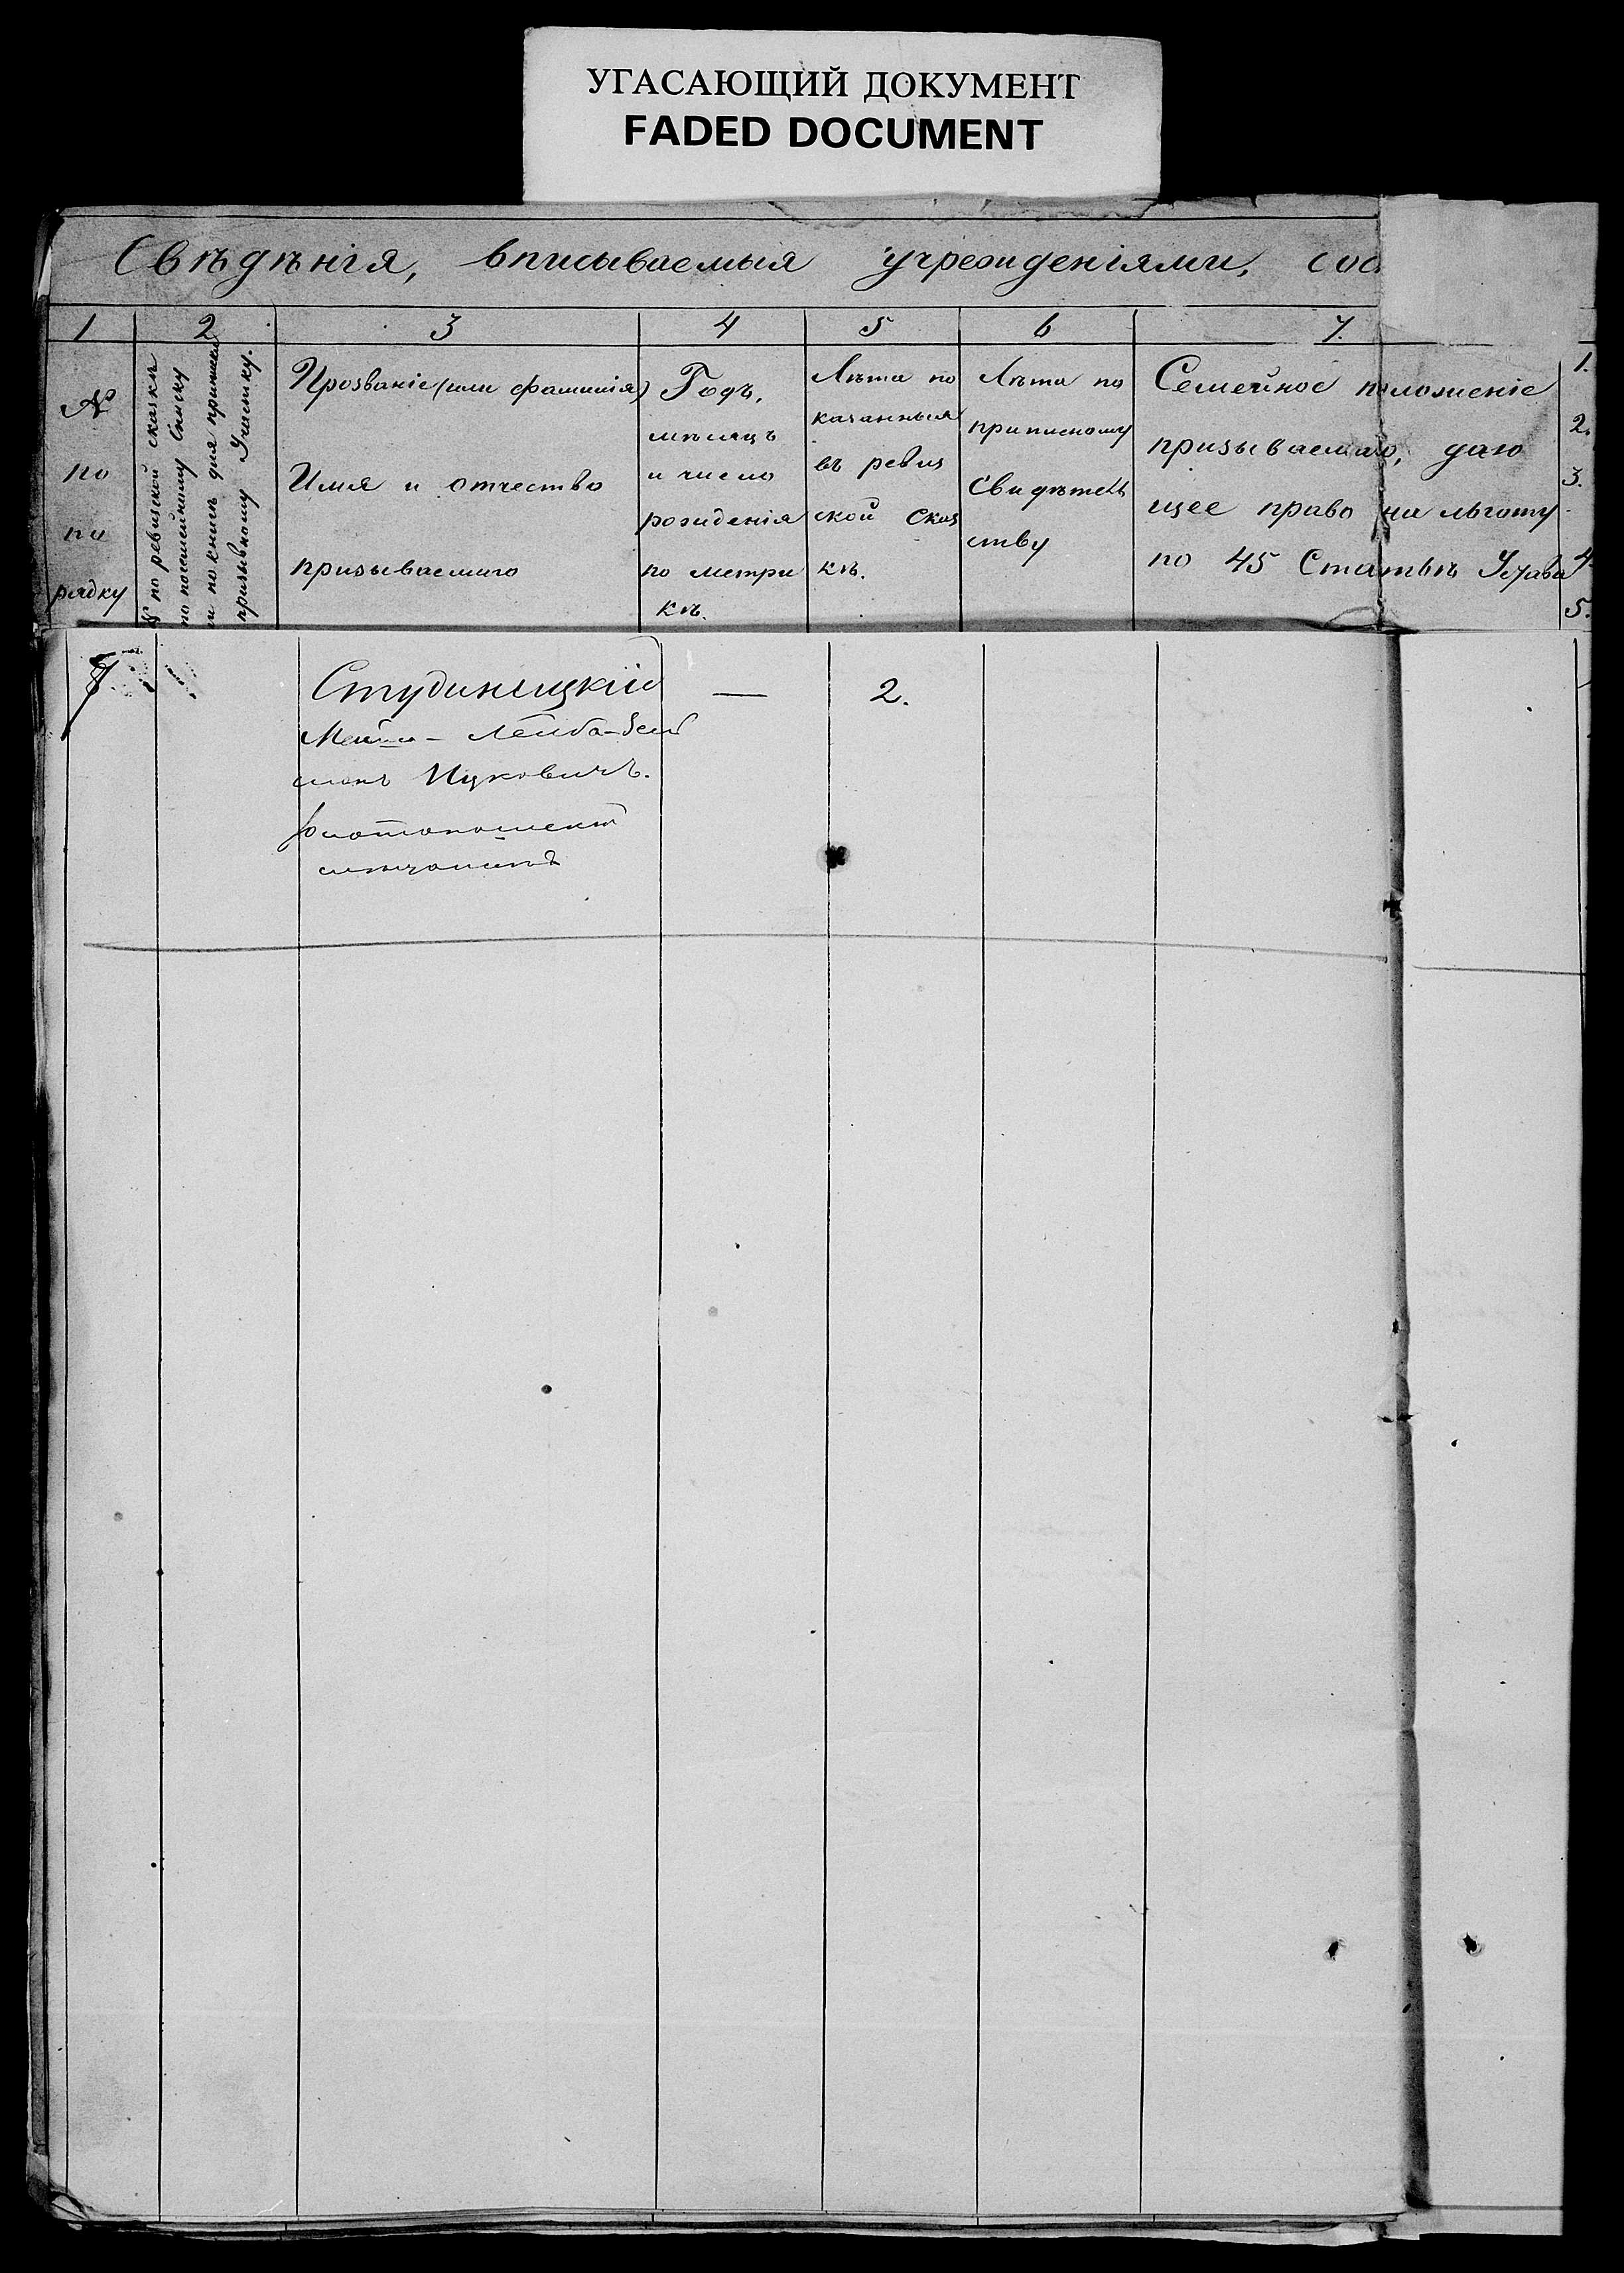 УГАСАЮЩИЙ ДОКУМЕНТ
FADED DOCUMENT
Свѣдѣнія, вписываемыя учрежденіями, сос
1 2 3 4 5 6 7.
№
по
по
рядку
№ по ревизской сказкѣ
по посемейному Списку
и по книгѣ для приписки
призывному Участку.
Прозваніе (или фамилія)
Имя и отчество
призываемаго
Годъ,
мѣсяцъ
и число
рожденія
по метри
кѣ.
Лѣта по
казанныя
въ ревиз
ской Сказ
кѣ.
Лѣта по
приписному
Свидѣтель
ству
Семейное положеніе
призываемаго, даю
щее право на льготу
по 45 Статьѣ Устава
1.
2.
3.
4.
5.
Студиницкій
— Лейба-Зель
манъ Ицковичъ.
—
2.